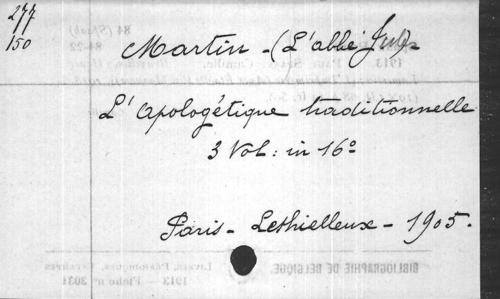 277
150
Martin - (L'abbé Jules)
L'Apologétique traditionnelle
3 Vol: in 16º
Paris - Lethielleux - 1905.
BIBLIOGRAPHIE DE BELGIQUE.
1913 Fiche nº 3031